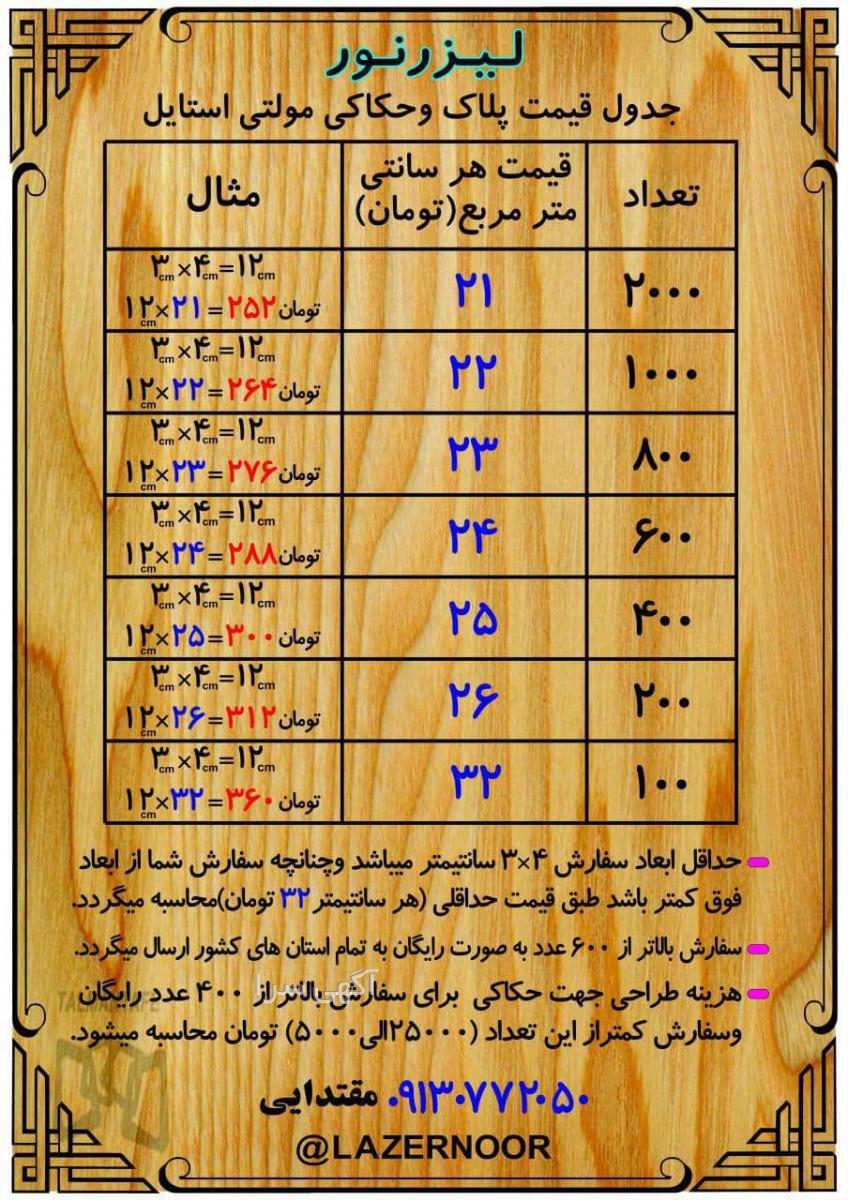 لیزرنور
جدول قیمت پلاک وحکاکی مولتی استایل
تعداد	قیمت هر سانتی متر مربع(تومان)	مثال
۲۰۰۰	۲۱	۳cm×۴cm=۱۲cm
۱۲cm×۲۱=۲۵۲تومان
۱۰۰۰	۲۲	۳cm×۴cm=۱۲cm
۱۲cm×۲۲=۲۶۴تومان
۸۰۰	۲۳	۳cm×۴cm=۱۲cm
۱۲cm×۲۳=۲۷۶تومان
۶۰۰	۲۴	۳cm×۴cm=۱۲cm
۱۲cm×۲۴=۲۸۸تومان
۴۰۰	۲۵	۳cm×۴cm=۱۲cm
۱۲cm×۲۵=۳۰۰تومان
۲۰۰	۲۶	۳cm×۴cm=۱۲cm
۱۲cm×۲۶=۳۱۲تومان
۱۰۰	۳۲	۳cm×۴cm=۱۲cm
۱۲cm×۳۲=۳۶۰تومان
حداقل ابعاد سفارش ۴×۳ سانتیمتر میباشد وچنانچه سفارش شما از ابعاد
فوق کمتر باشد طبق قیمت حداقلی (هر سانتیمتر ۳۲ تومان)محاسبه میگردد.
سفارش بالاتر از ۶۰۰ عدد به صورت رایگان به تمام استان های کشور ارسال میگردد.
هزینه طراحی جهت حکاکی برای سفارش بالاتر از ۴۰۰ عدد رایگان
وسفارش کمتراز این تعداد (۲۵۰۰۰الی۵۰۰۰) تومان محاسبه میشود.
آگهی سرا
۰۹۱۳۰۷۷۲۰۵۰ مقتدایی
@LAZERNOOR